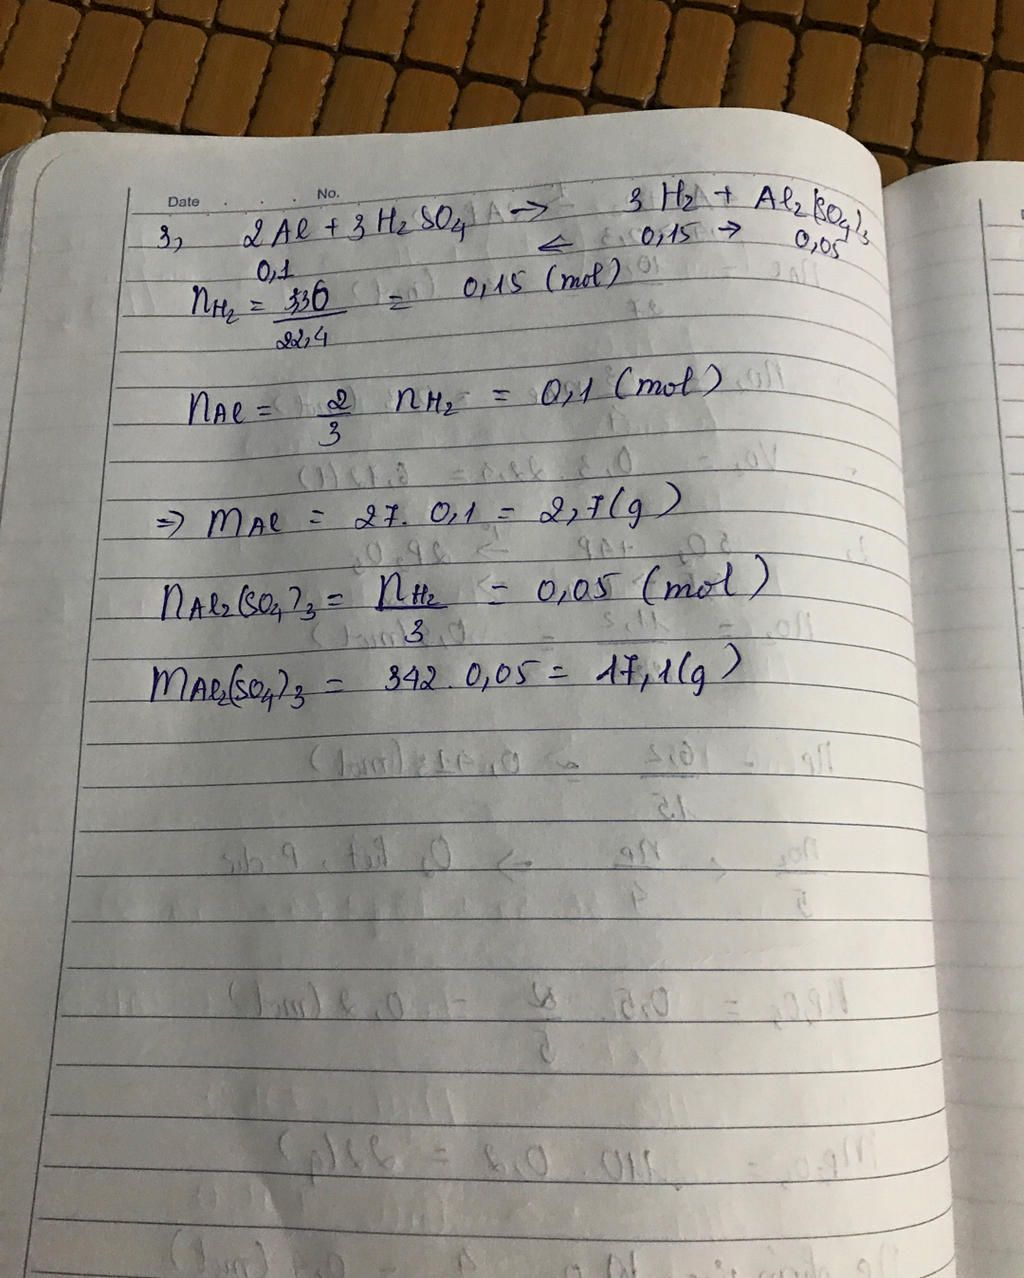 Date . . . No.
3, 2Al + 3H₂SO₄ → 3H₂ + Al₂(SO₄)₃
0,1 ← 0,15 → 0,05
nH₂ = 3,36/22,4 = 0,15 (mol)
nAl = 2/3 nH₂ = 0,1 (mol)
=> mAl = 27. 0,1 = 2,7(g)
nAl₂(SO₄)₃ = nH₂/3 = 0,05 (mol)
mAl₂(SO₄)₃ = 342. 0,05 = 17,1(g)